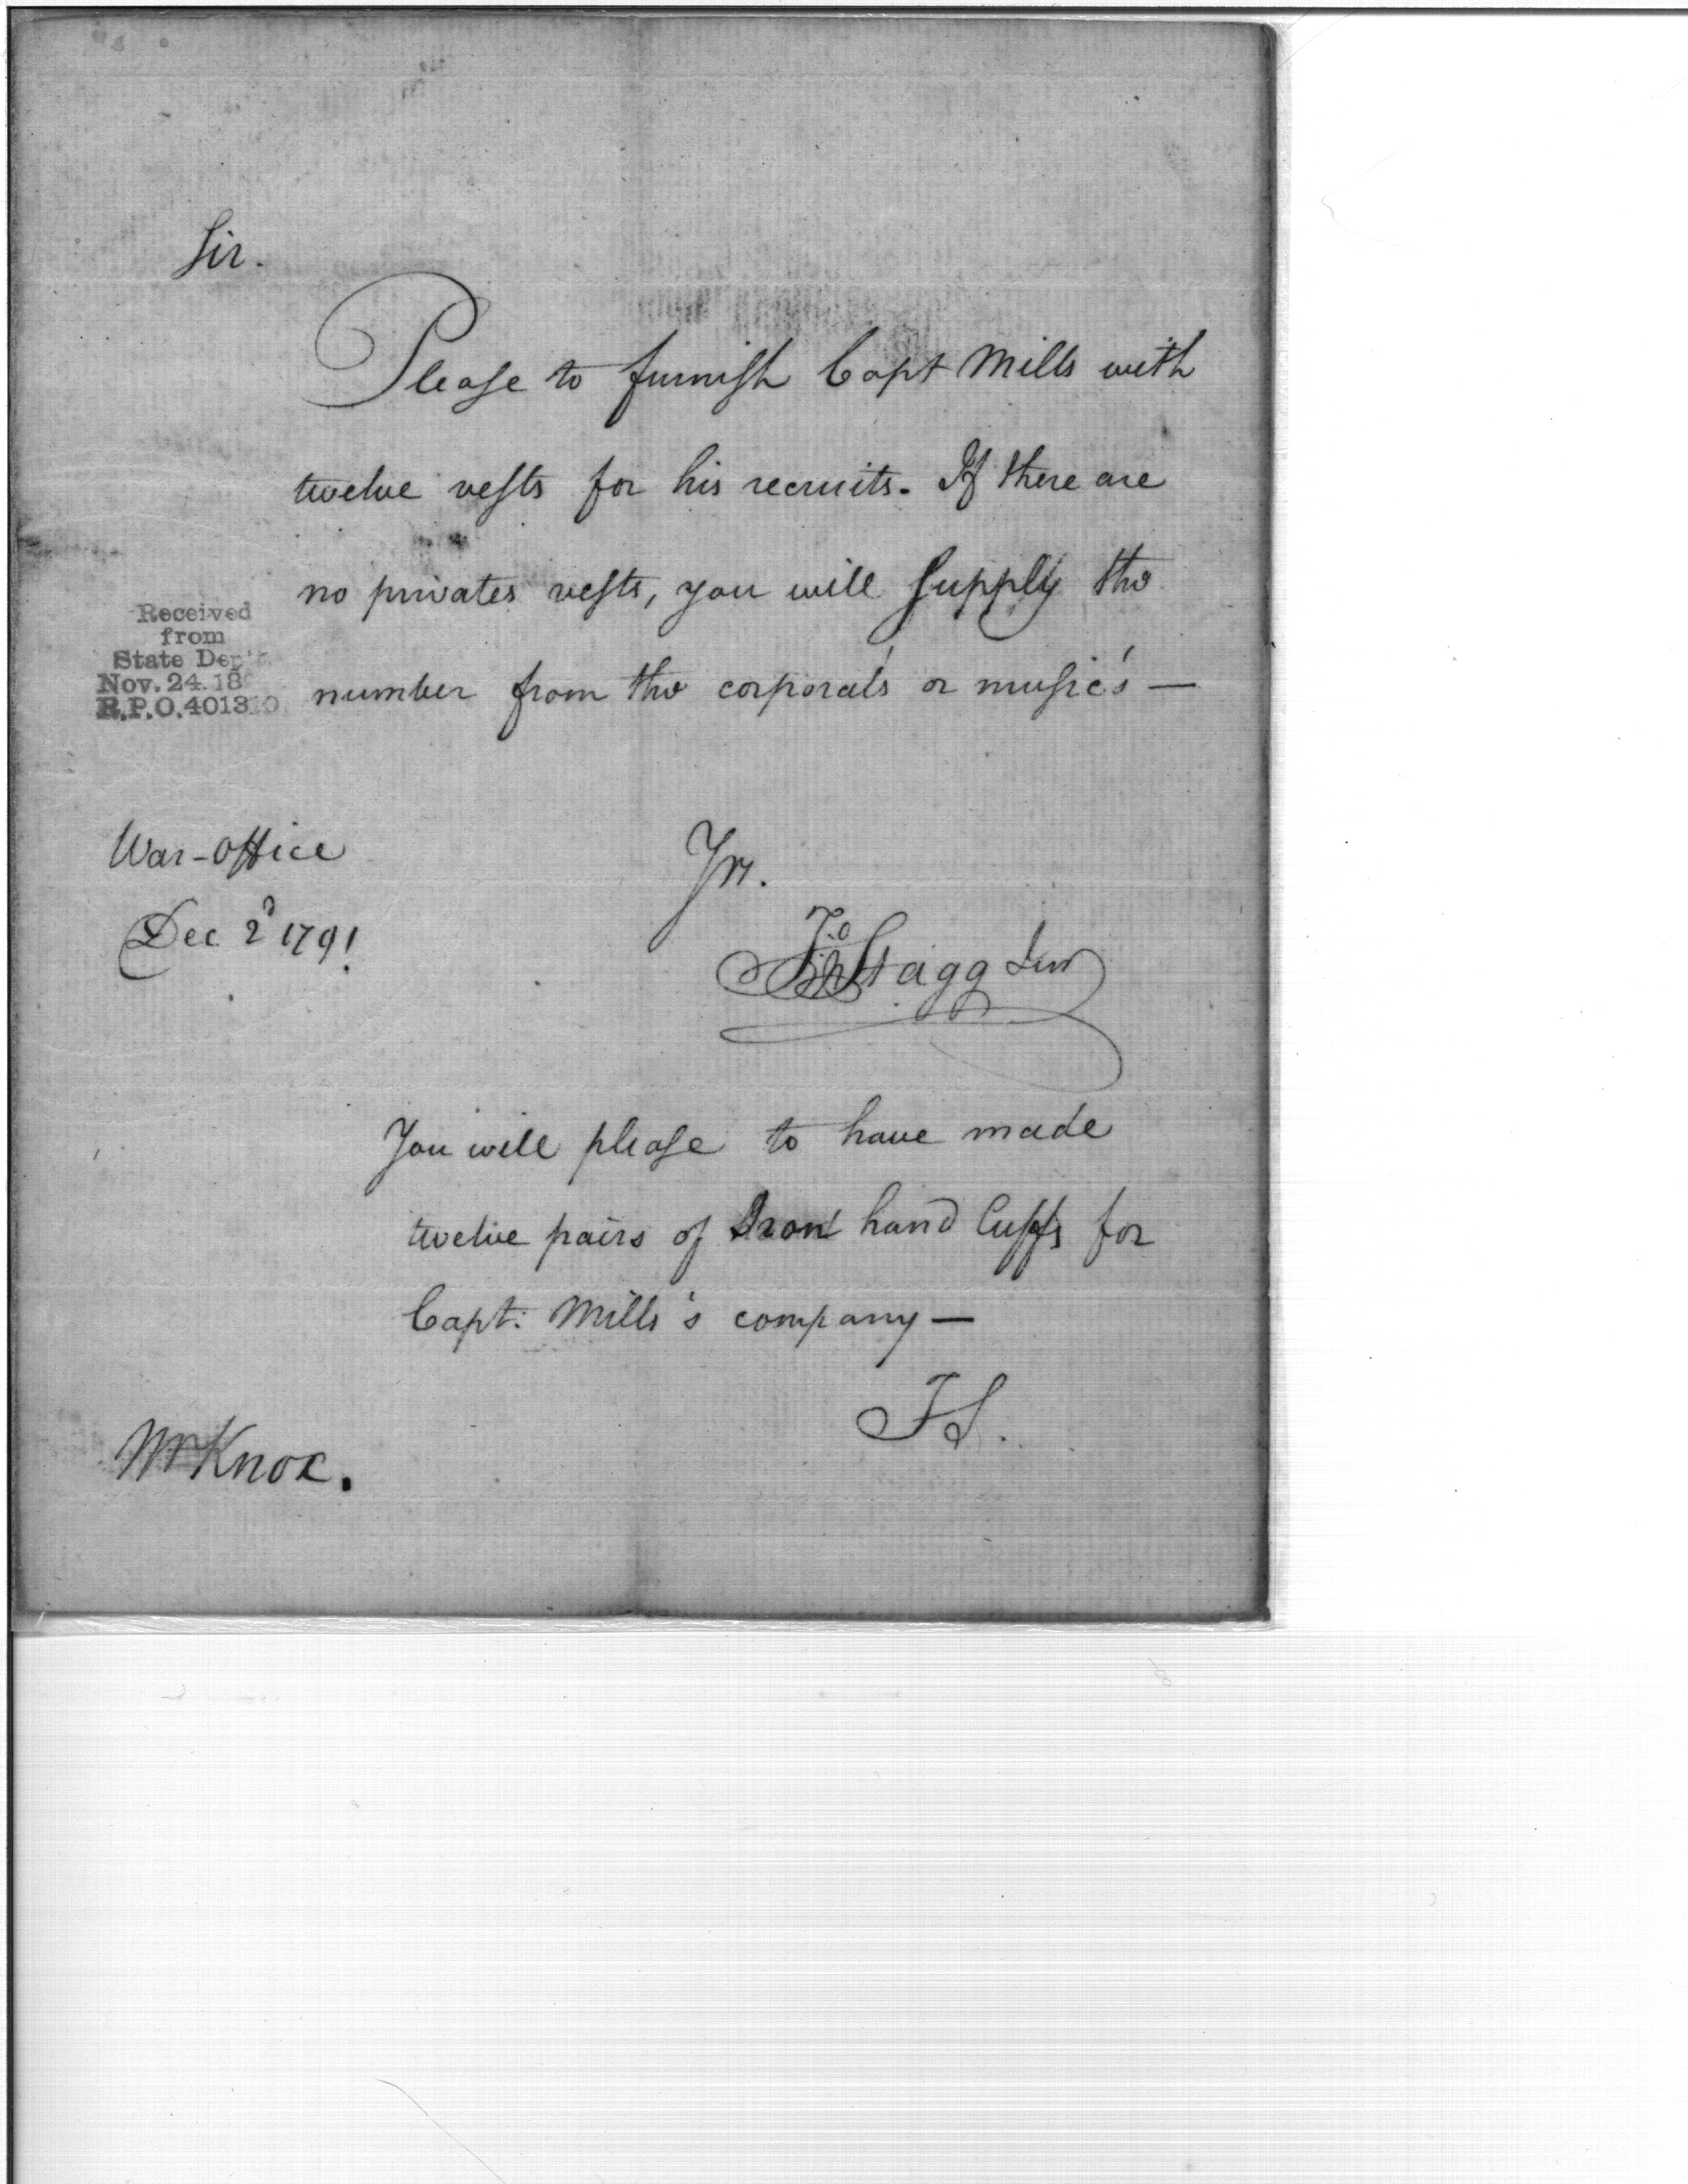 Sir.
Please to furnish Capt Mills with
twelve vests for his recruits. If there are
no privates vests, you will supply the
number from the corporal's or music's —
Received
from
State Dep't
Nov. 24. 18
R.P.O. 401310
War-Office
Dec 2d 1791
Yrs.
Jno Stagg Junr
You will please to have made
twelve pairs of Iron hand Cuffs for
Capt. Mills's company —
JS.
Mr Knox.